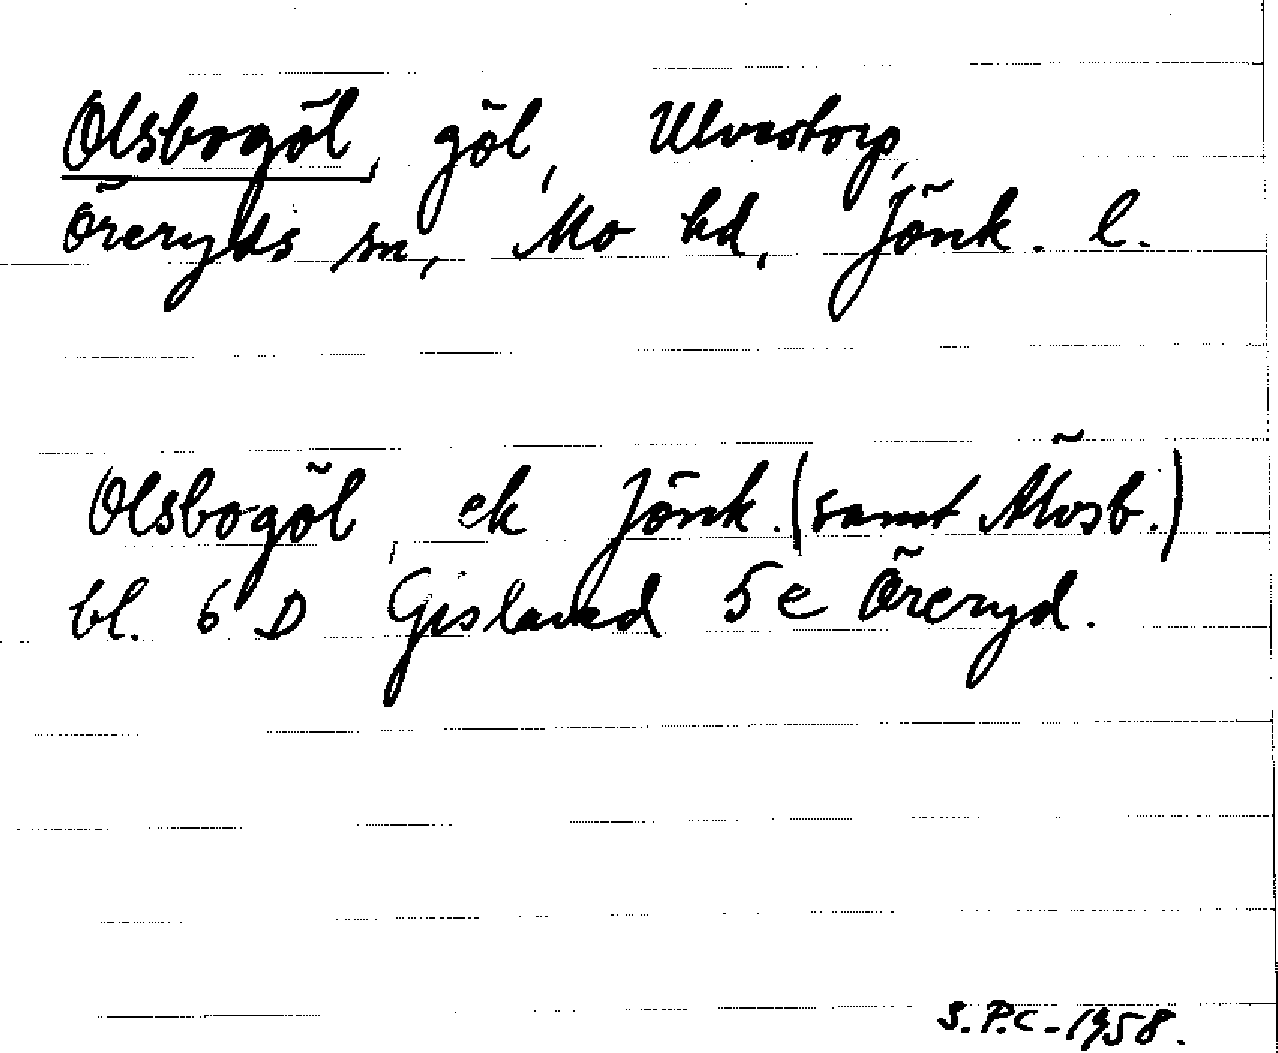 Olsbogöl, göl, Ulvestorp,
Öreryds sn, Mo hd, Jönk. l.
Olsbogöl, ek Jönk. (samt Älvsb.)
bl. 6 D Gislaved 5 e Öreryd.
S.P.C. - 1958.